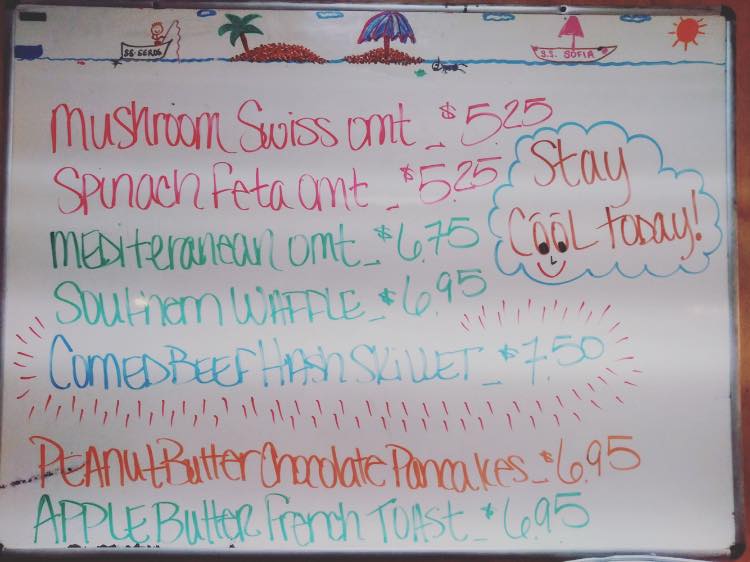 SS. GERDS
S.S. SOFIA
Mushroom Swiss omt - $5.25
Spinach Feta omt - $5.25
Mediteranean omt - $6.75
Southern WAFFLE - $6.95
Corned Beef Hash Skillet - $7.50
Peanut Butter Chocolate Pancakes - $6.95
APPLE Butter French TOAST - $6.95
Stay
Cool today!